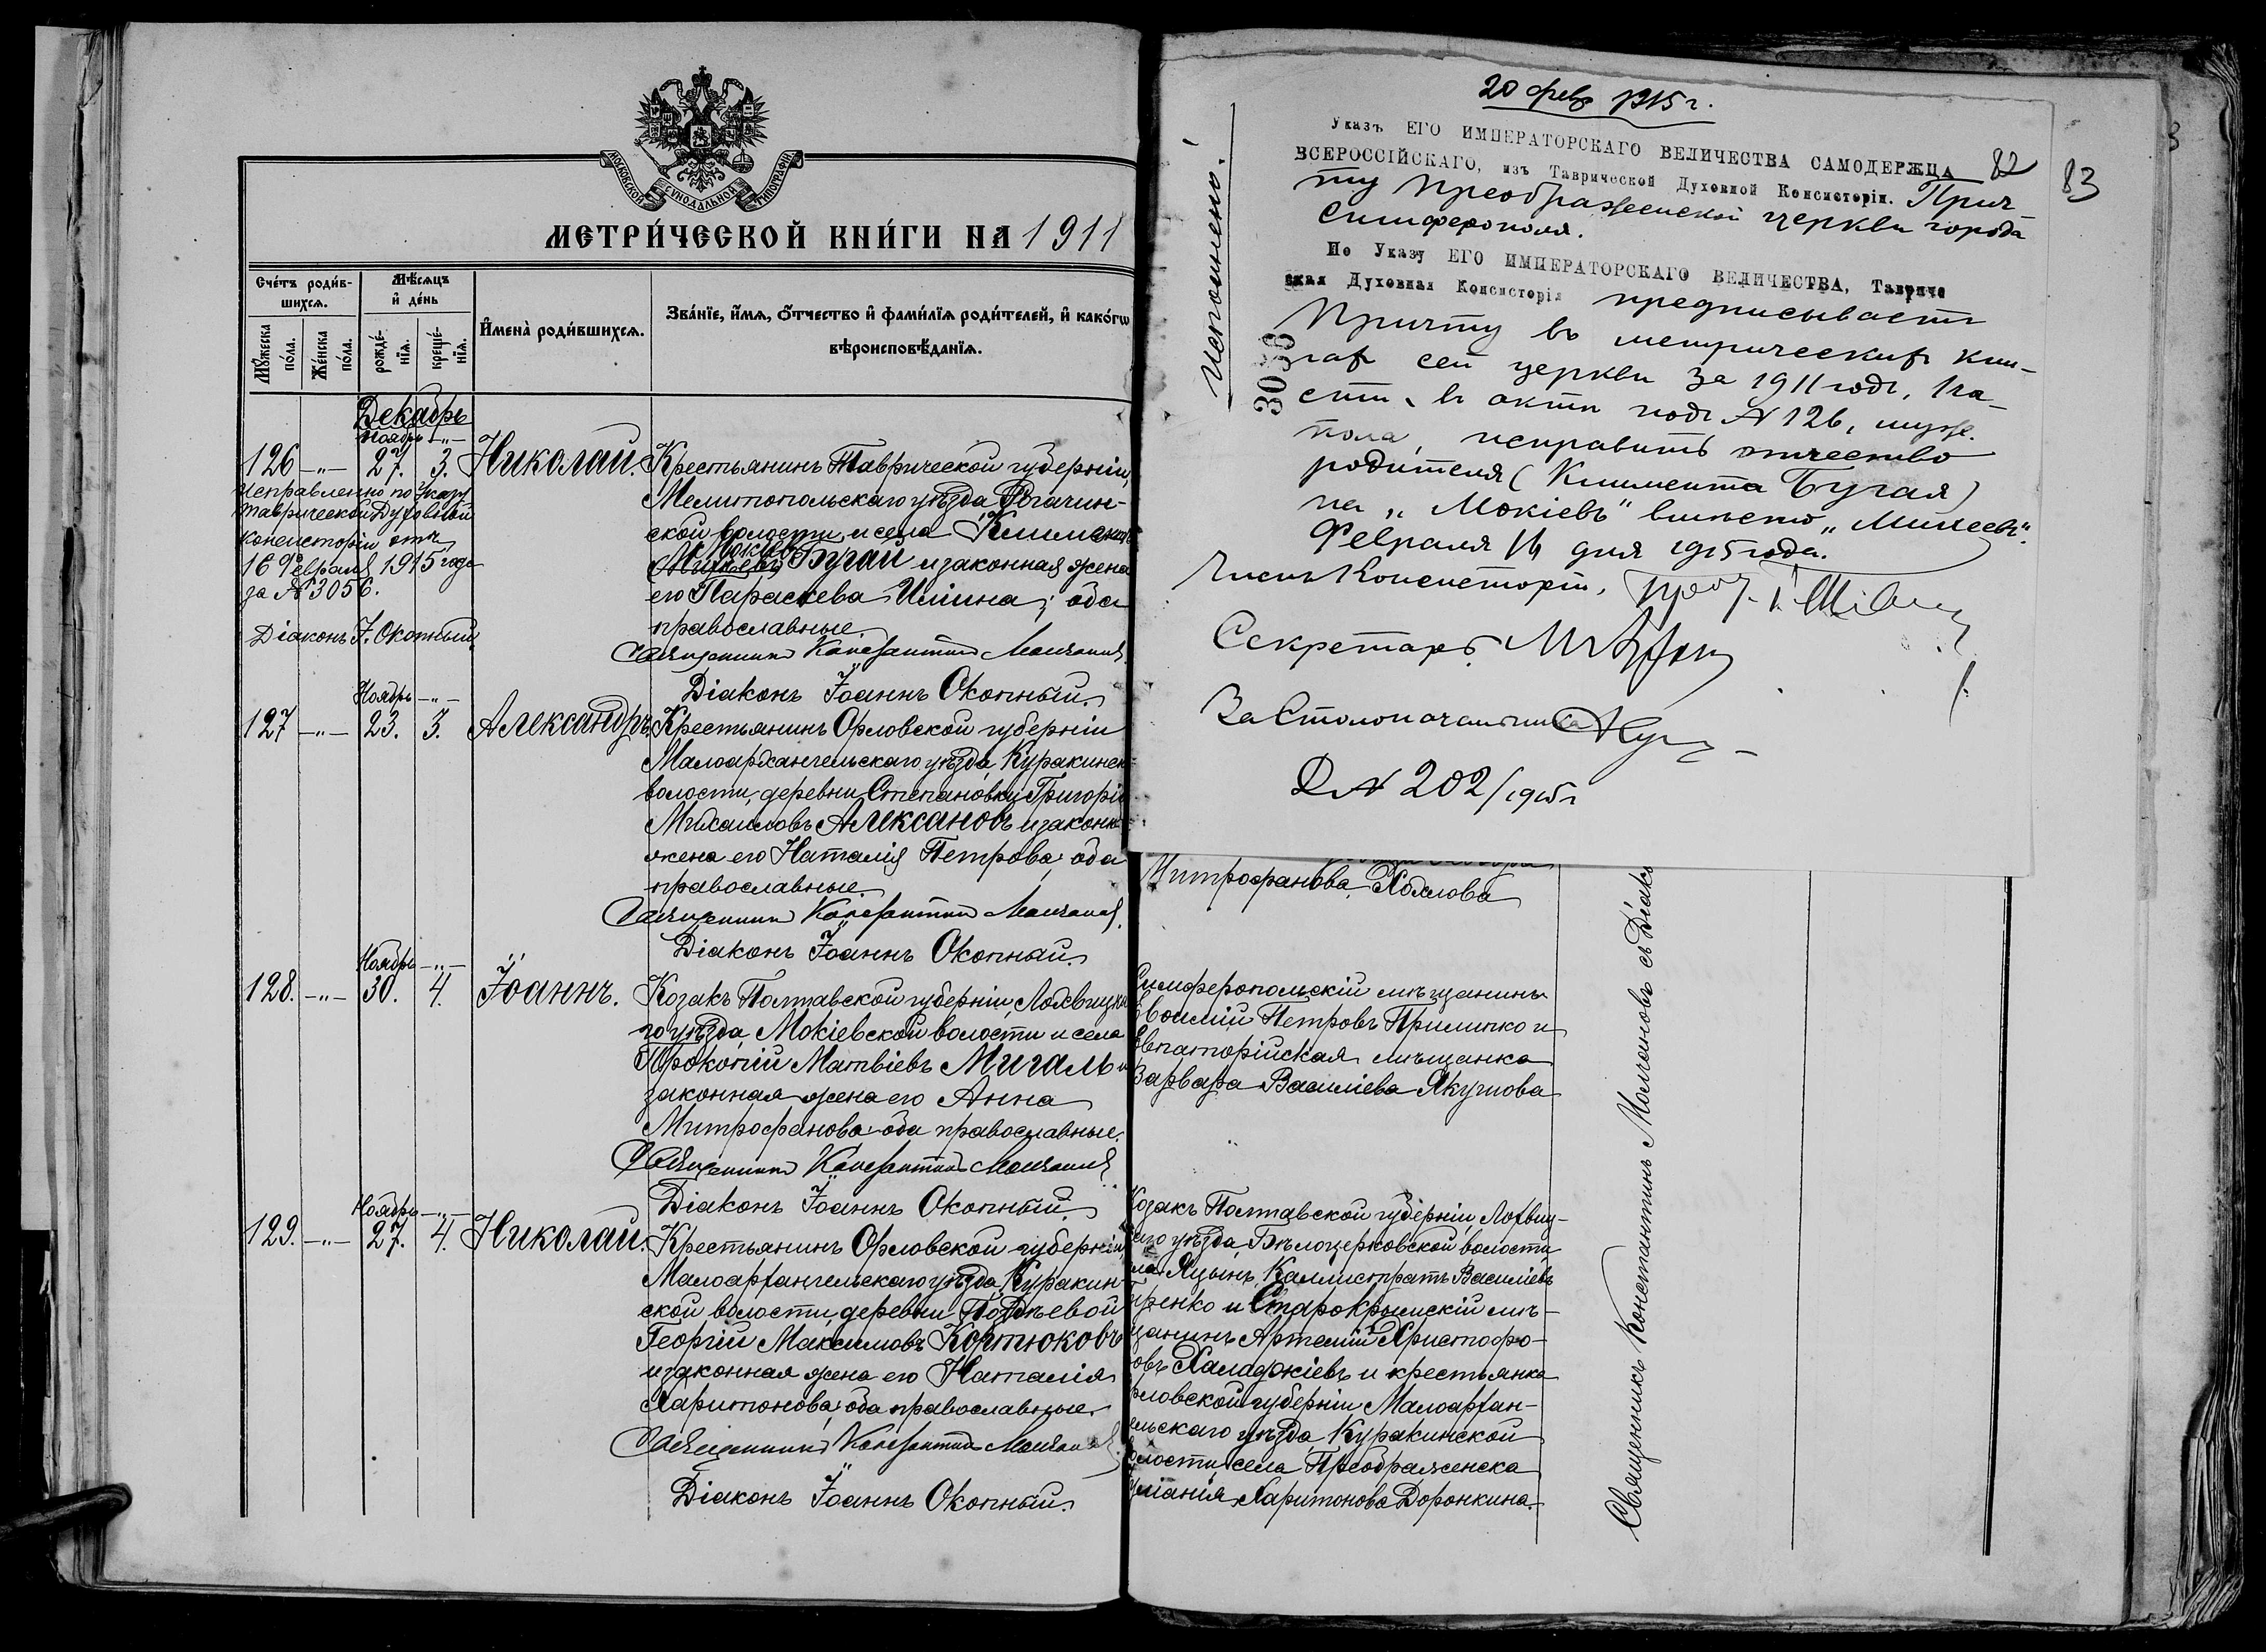 МОСКОВСКОЙ СѴНОДАЛЬНОЙ ТИПОГРАФІИ
МЕТРИ́ЧЕСКОЙ КНИ́ГИ НА 1911
Сче́тъ роди́в-
шихся.
Мѣ́сяцъ
и҆ де́нь
И҆мена̀ роди́вшихся.
Зва́нїе, и҆́мя, ѻ҆́тчество и҆ фами́лїя роди́телей, и҆ како́гѡ
вѣроисповѣ́данїя.
Мꙋ́жеска
по́ла.
Же́нска
по́ла.
рожде́-
нїя.
креще́-
нїя.
Декабрь
Ноябрь -"-
126 -"- 27. 3. Николай. Крестьянинъ Таврической губерніи,
Мелитопольскаго уѣзда Рогачин-
ской волости и села Климентъ
Мокіевъ
Михѣевъ Бугай и законная жена
его Параскева Иліина; оба
православные.
Исправленно по Указу
Таврической Духовной
Консисторіи отъ
16 Февраля 1915 года
за № 3056.
Діаконъ І. Окопный.
Священникъ Константинъ Молчановъ.
Діаконъ Іоаннъ Окопный.
Ноябрь -"-
127 -"- 23. 3. Александръ. Крестьянинъ Орловской губерніи
Малоархангельскаго уѣзда, Куракинск
волости, деревни Степановки Григорій
Михаиловъ Алексановъ и законн
жена его Наталія Петрова; оба
православные.
Священникъ Константинъ Молчановъ.
Діаконъ Іоаннъ Окопный.
Ноябрь -"-
128. -"- 30. 4. Іоаннъ. Козакъ Полтавской губерніи, Лохвицка
го уѣзда, Мокіевской волости и села
Прокопій Матвіевъ Мигаль и
законная жена его Анна
Митрофанова; оба православные.
Священникъ Константинъ Молчановъ
Діаконъ Іоаннъ Окопный.
Ноябрь -"-
129. -"- 27. 4. Николай. Крестьянинъ Орловской губерніи,
Малоархангельскаго уѣзда, Куракин-
ской волости, деревни Позднѣевой
Георгій Максимовъ Кортюковъ
и законная жена его Наталія
Харитонова; оба православные.
Священникъ Константинъ Молчановъ
Діаконъ Іоаннъ Окопный.
20 февр 1915 г.
Указъ ЕГО ИМПЕРАТОРСКАГО ВЕЛИЧЕСТВА САМОДЕРЖЦА 82
83
ВСЕРОССІЙСКАГО, изъ Таврической Духовной Консисторіи. Прич
ту Преображенской церкви города
Симферополя.
По Указу ЕГО ИМПЕРАТОРСКАГО ВЕЛИЧЕСТВА, Тавриче
ская Духовная Консисторія предписываетъ
Причту въ метрическихъ кни-
гахъ сей церкви за 1911 годъ, 1 ча-
сти, въ акти подъ № 126, муж.
пола, исправить отчество
родителя (Климента Бугая)
на „Мокіевъ" вмѣсто „Михеевъ".
Февраля 16 дня 1915 года.
Исполнено.
3056
Членъ Консисторіи, прот.
Секретарь
За Столоначальника
Д № 202/1915 г
Митрофанова Хохлова
Симферопольскій мѣщанинъ
Евоимій Петровъ Прилипко и
Евпаторійская мѣщанка
Варвара Василіева Якушова
Козакъ Полтавской губерніи, Лохвиц-
каго уѣзда, Бѣлоцерковской волости
села Яцынъ, Каллистратъ Василіевъ
и Старокрымскій мѣ-
щанинъ Артемій Христофо-
ровъ Халаджіевъ и крестьянка
Орловской губерніи Малоархан-
гельскаго уѣзда, Куракинской
волости, села Преображенска
Харитонова Доронкина.
Священникъ Константинъ Молчановъ съ Діак